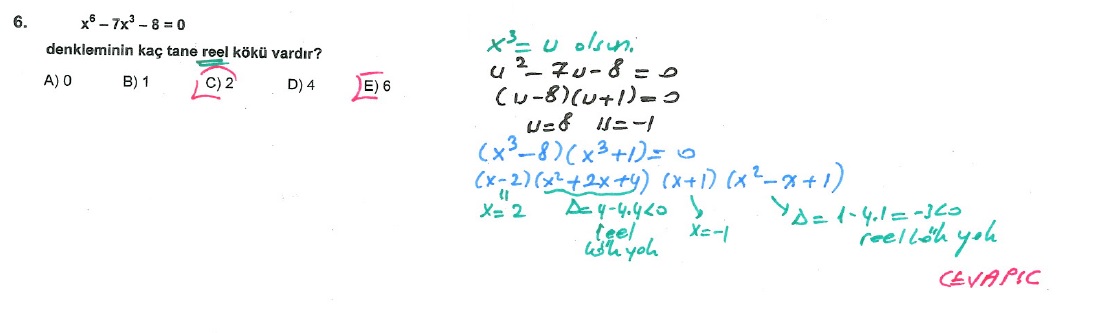 6. x⁶ – 7x³ – 8 = 0
denkleminin kaç tane reel kökü vardır?
A) 0 B) 1 C) 2 D) 4 E) 6
x³ = u olsun.
u² – 7u – 8 = 0
(u–8)(u+1) = 0
u=8 u=–1
(x³–8)(x³+1) = 0
(x–2)(x²+2x+4) (x+1) (x²–x+1)
x=2 Δ=4–4.4<0 x=–1 Δ=1–4.1=–3<0
reel reel kök yok
kök yok
CEVAP C